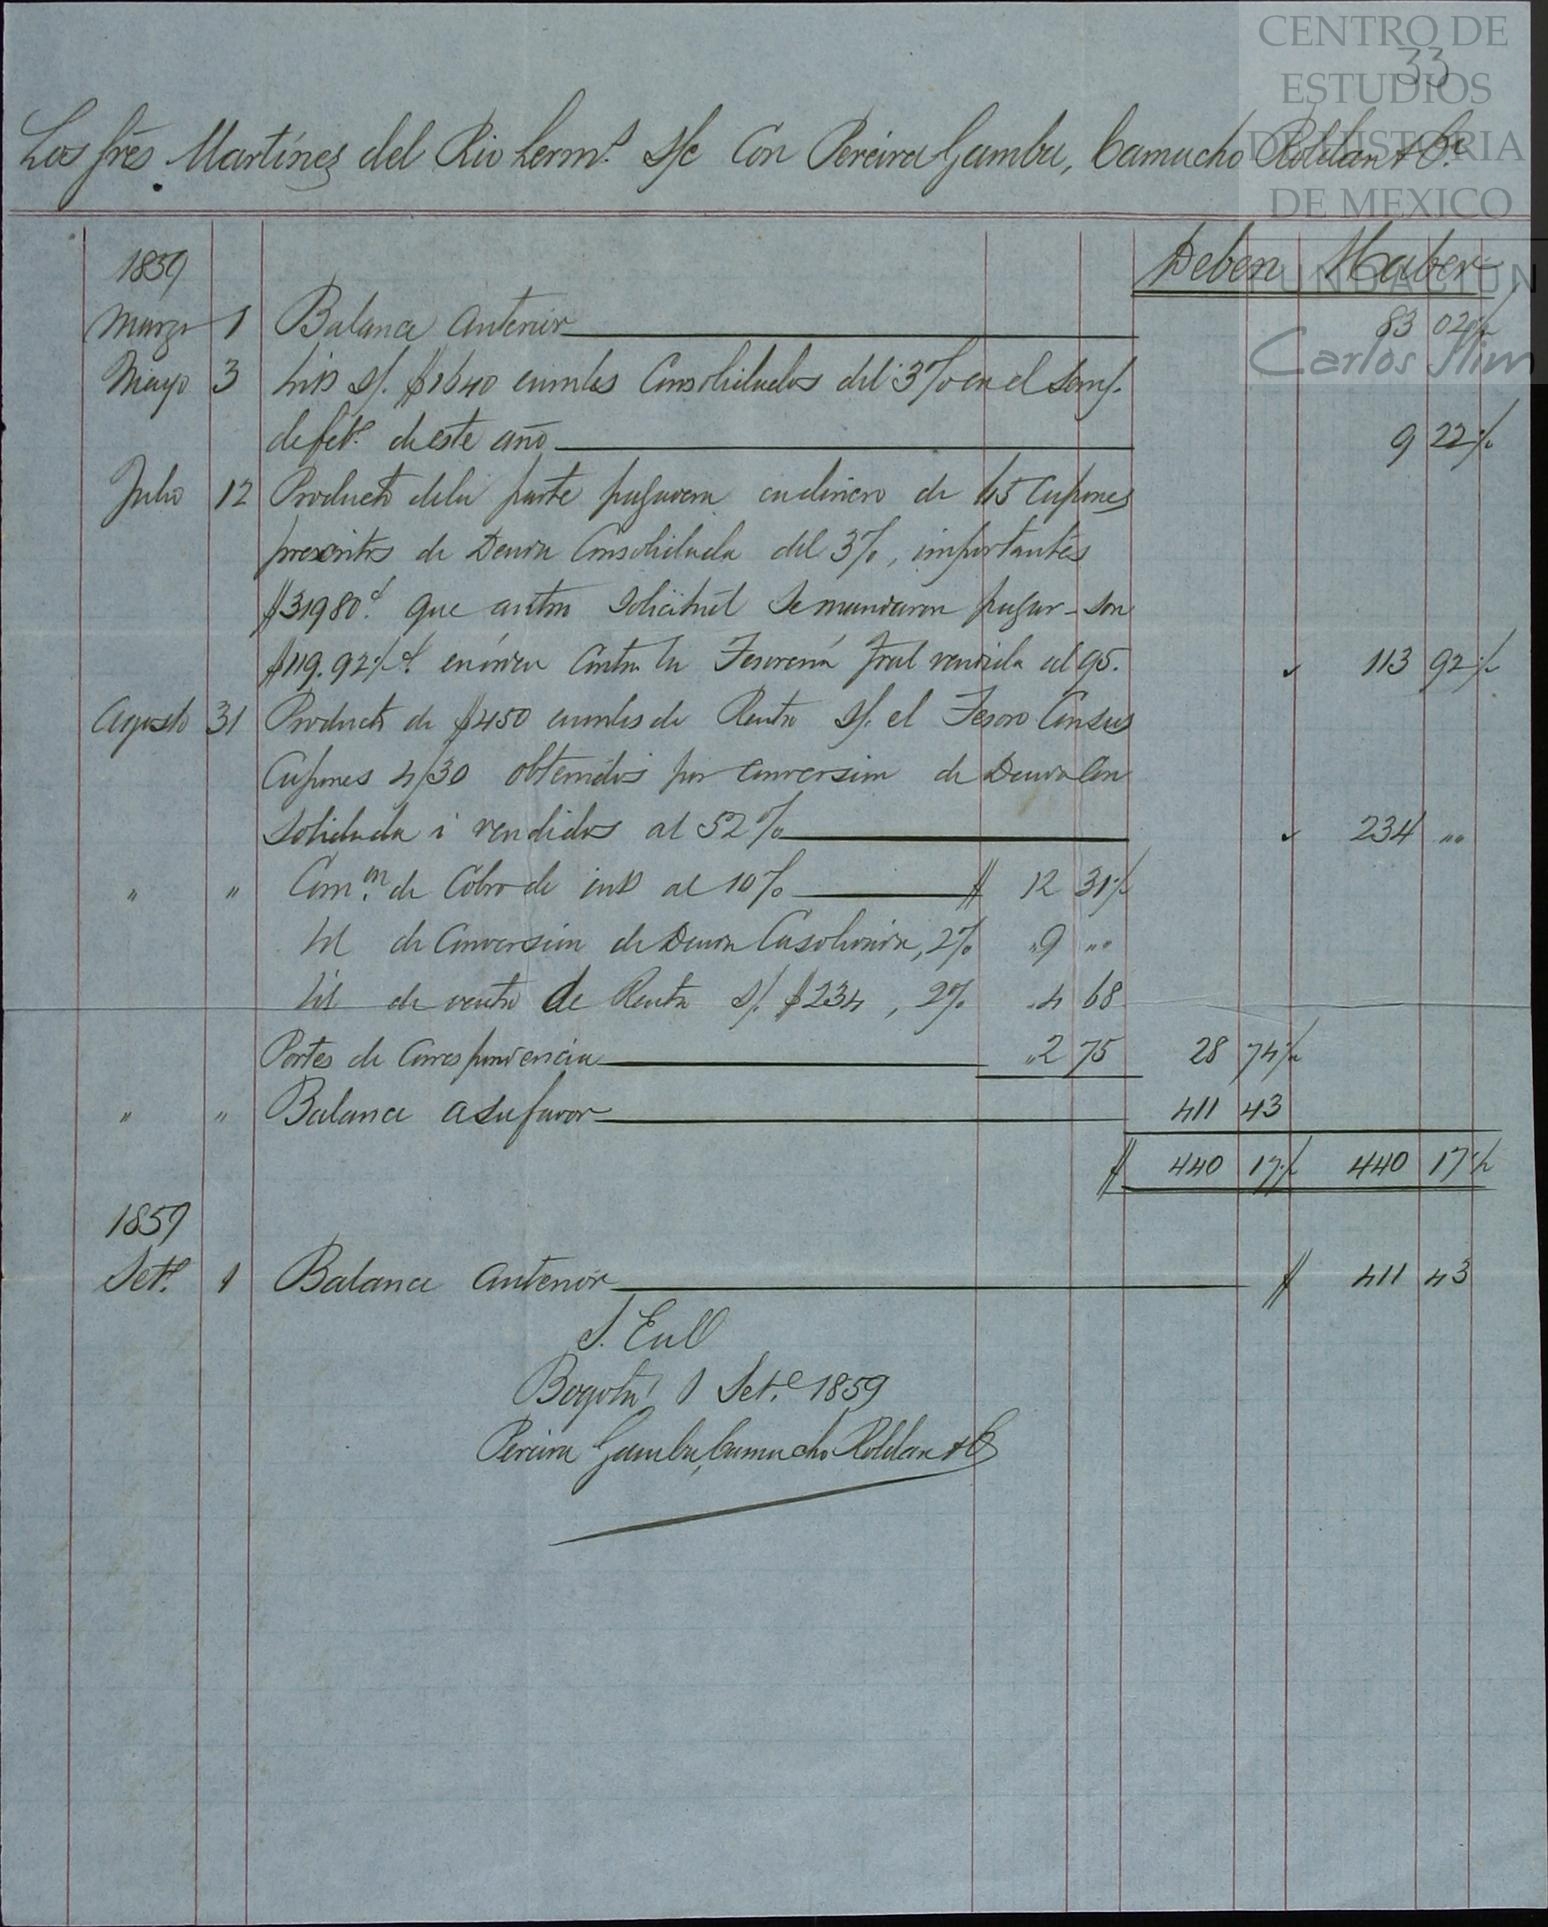 CENTRO DE
ESTUDIOS
DE HISTORIA
DE MEXICO
FUNDACIÓN
Carlos Slim
33
Los Sres. Martínez del Rio herms. S/c Con Pereira Gamba, Camacho Roldan & Ca.
Deben Haber
1859
Marzo 1 Balance anterior 83 02½
Mayo 3 S/. $1640 Consolidados del 3% en el Sem/.
de Feb. de este año 9 22½
Julio 12 Producto de la parte pagadera en dinero de 45 Cupones
prescritos de Deuda Consolidada del 3%, importantes
$319 80 que a ntra solicitud se mandaron pagar - son
$119.92½ en orden contra la Tesorería Gral vendida al 95. 113 92½
Agosto 31 Producto de $450 de Renta S/. el Tesoro Con sus
Cupones 4/30 obtenidos por conversion de Deuda Con
solidada i vendidos al 52% 234 ""
" " Com.on de Cobro de al 10% $ 12 31½
Id de Conversion de Deuda 2% "9 ""
Id de venta de Renta S/. $234, 2% "4 68
Portes de Correspondencia "2 75 28 74½
" " Balance a su favor 411 43
$ 440 17½ 440 17½
1859
Set.e 1 Balance anterior $ 411 43
S. E u O
Bogotá 1 Set.e 1859
Pereira Gamba, Camacho Roldan & C